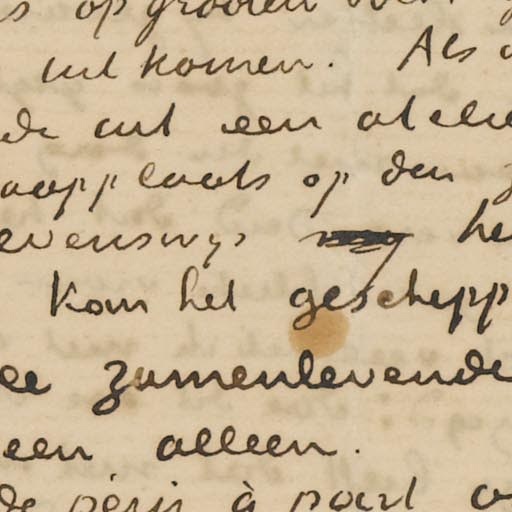 s op grooten
uit komen. Als
de uit een atelie
aapplaats op den
evenswijs he
kan het geschepp
ee zamenlevende
een alleen.
de père à part